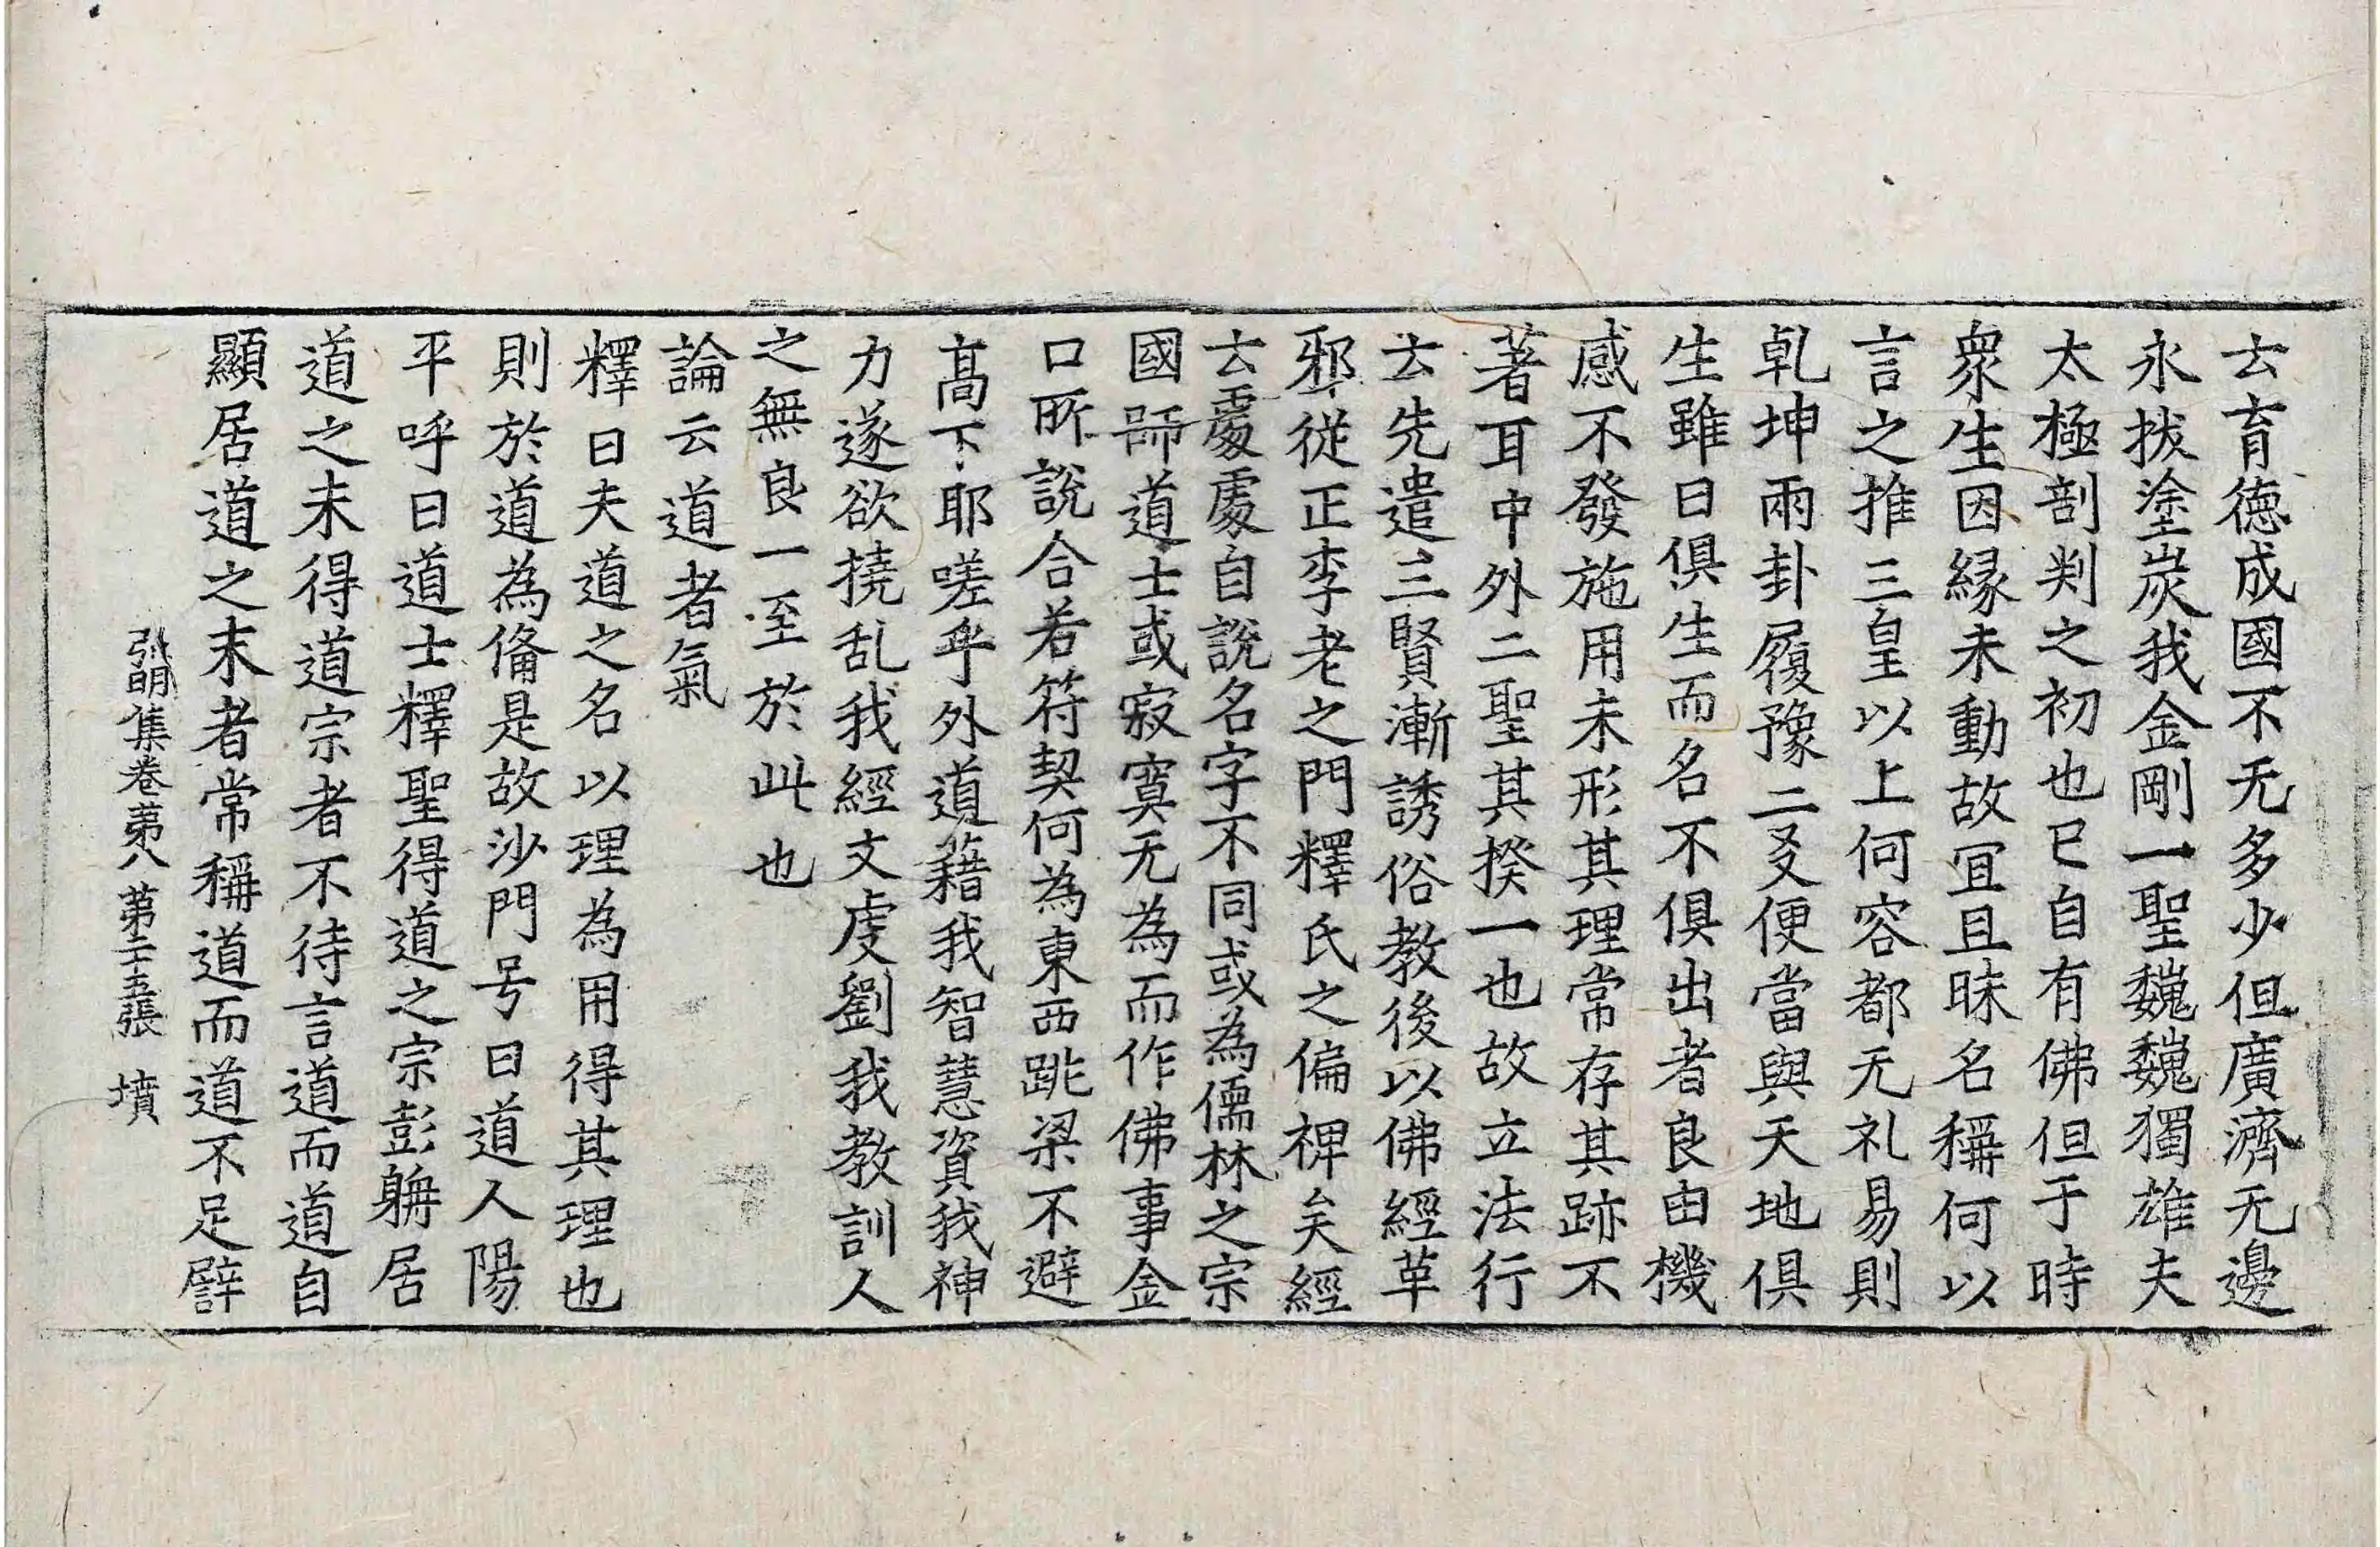 去育德成國不无多少但廣濟无邊
永拔塗炭我金剛一聖巍巍獨雄夫
太極剖判之初也已自有佛但于時
衆生因緣未動故冝且昧名稱何以
言之推三皇以上何容都无礼易則
乹坤兩卦履豫二爻便當與天地俱
生雖曰俱生而名不俱出者良由機
感不發施用未形其理常存其跡不
著耳中外二聖其揆一也故立法行
云先遣三賢漸誘俗教後以佛經革
邪從正李老之門釋氏之偏裨矣經
云處處自說名字不同或為儒林之宗
國師道士或寂寞无為而作佛事金
口所說合若符契何為東西跳梁不避
髙下耶嗟乎外道藉我智慧資我神
力遂欲撓乱我經文虔劉我教訓人
之無良一至於此也
論云道者氣
釋曰夫道之名以理為用得其理也
則於道為俻是故沙門号曰道人陽
平呼曰道士釋聖得道之宗彭躭居
道之末得道宗者不待言道而道自
顯居道之末者常稱道而道不足譬
弘明集卷苐八 苐二十五張 墳